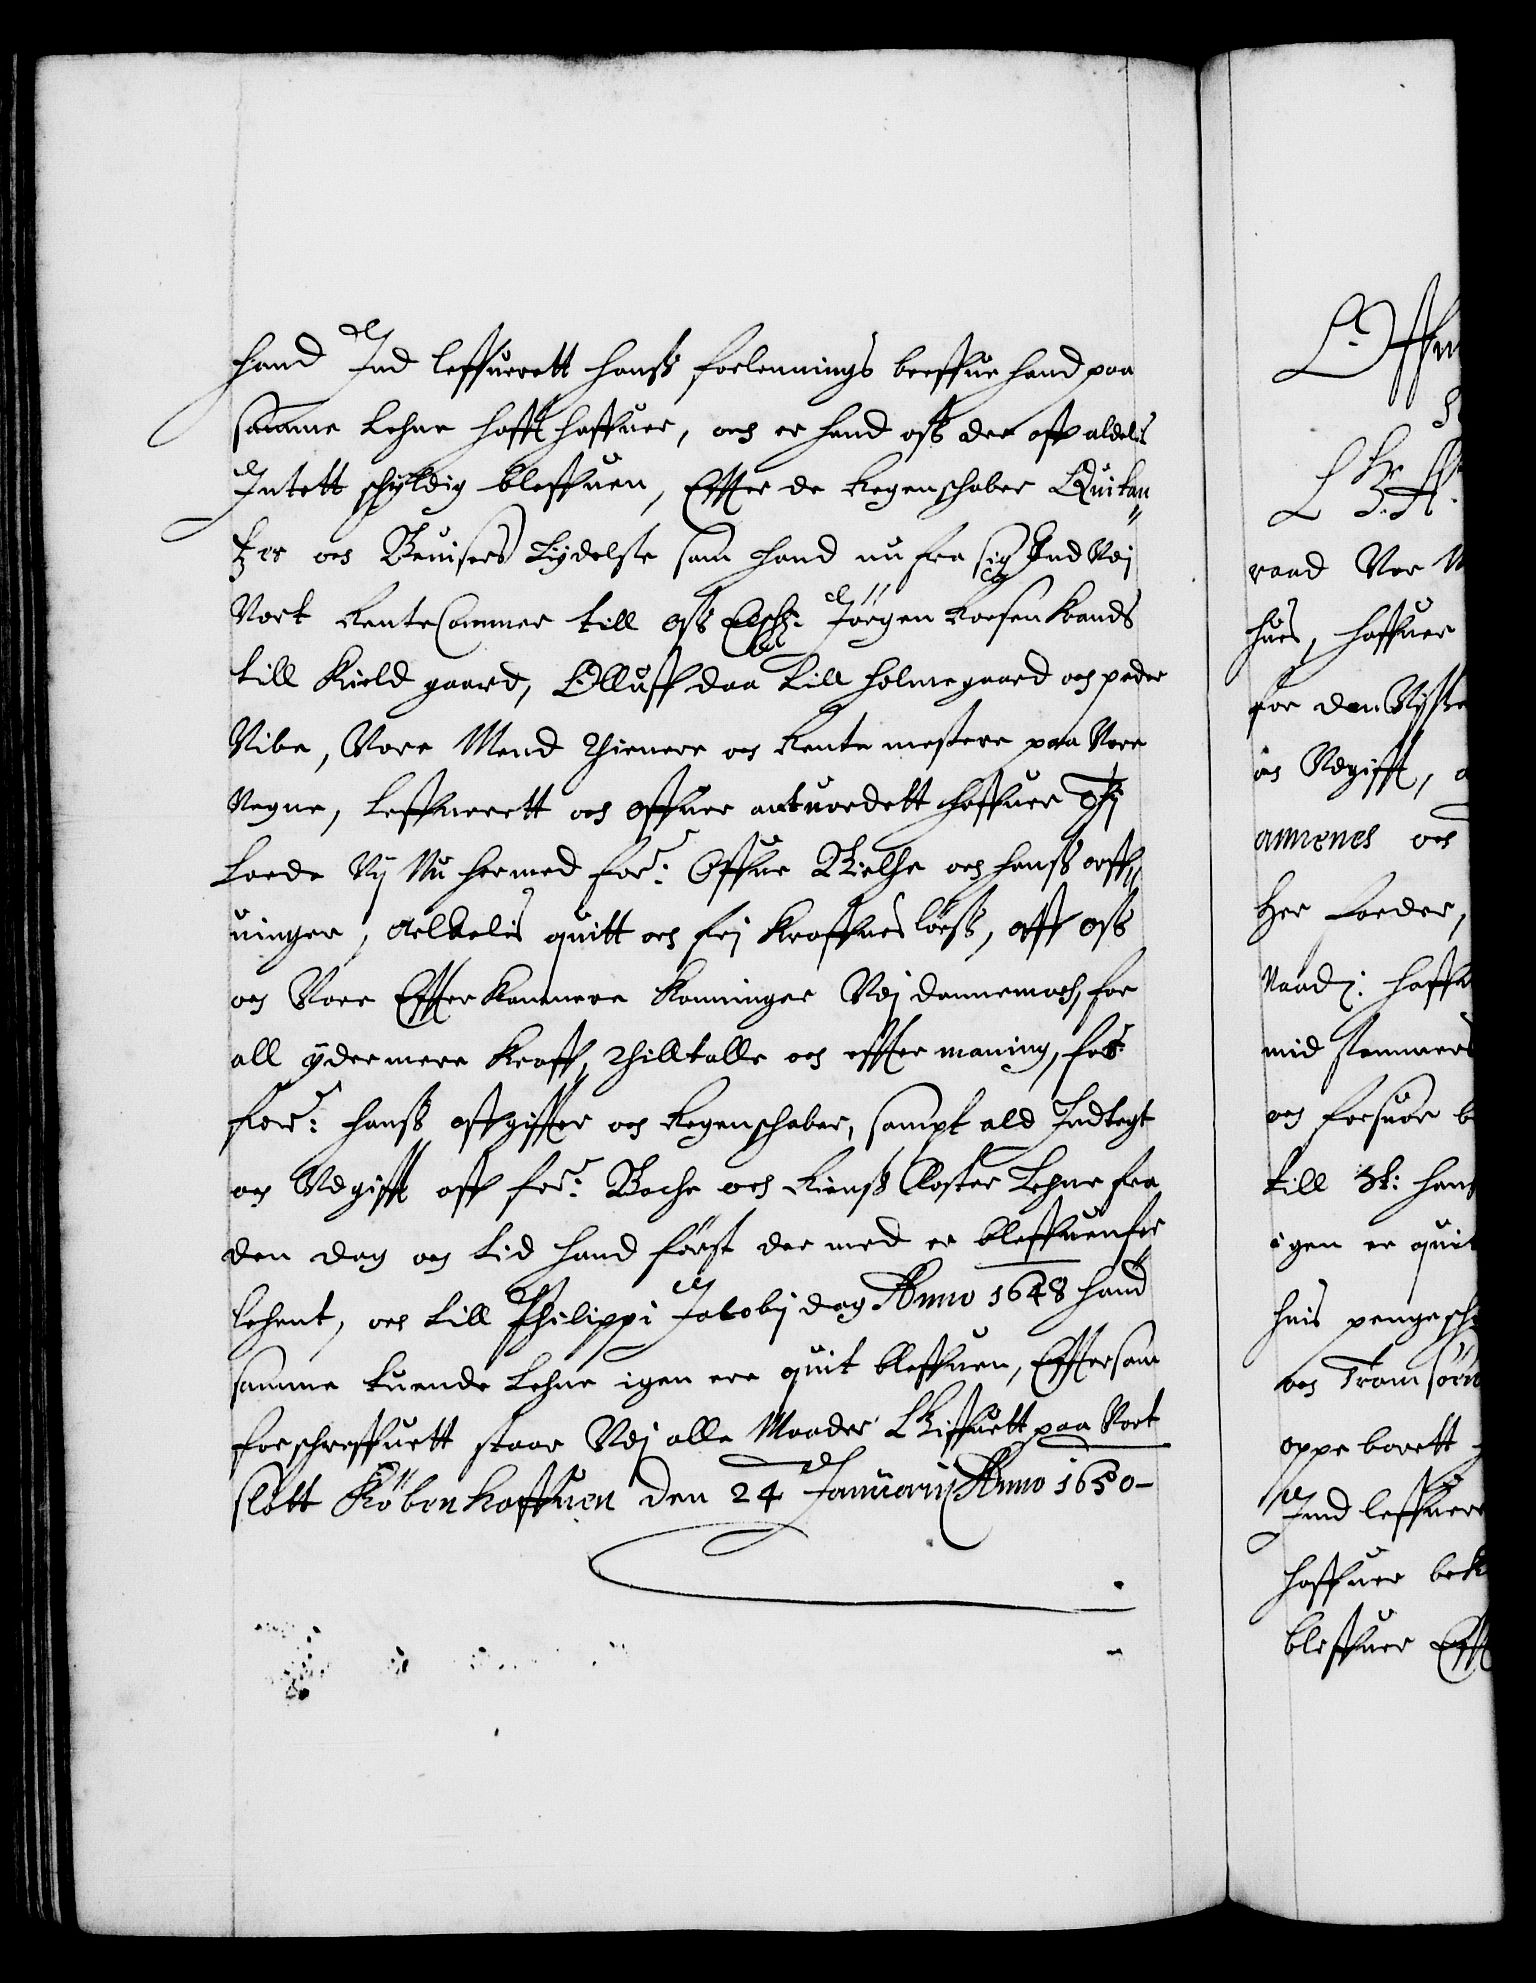 hand Ind leffuerett hanß forlennings breffue hand paa
samme Lehne hafft haffuer, och er hand oß der aff aldelis
Intett schyldig bleffuen, Effter de Regenschaber Quitan„
tzer och Beuisers Lydelse som hand nu fra sig Ind Udj
Vort Rente Cammer till oß Elsch: Jörgen Rosenkrands
till Kield gaard, Olluff daa till Holmegaard och peder
Vibe, Vore Mend Thienere och Rente mestere paa Vore
Vegne, Leffuerett och offuer antuordett haffuer Thj
Lade Vij Nu hermed forᵉ: Offue Bielke och hanß arff„
uinger, Aeldelis quitt och frj Kraffuesløeß, aff oß
och Vore Effterkommere Konninger Udj dannemarch, for
all ydermere Kraff, Thilltalle och effter maning, for
forᵉ: hanß affgiffter och Regenschaber, sampt ald Indtegt
och Udgifft aff forᵉ: Bache och Reinß Closter Lehne fra
den dag och tid hand först der med er bleffuen for
lehent, och till Philippi Jacobj dag Anno 1648 hand
samme tuende Lehne igen ere quit bleffuen, Effter som
forschreffuett staar Udj alle Maader Skriffuett paa Vort
slott Kiöbenhaffuen den 24 Januarij Anno 1650-
raad Vor
hues, haffuer
for den
och Udgifft,
och
Her
haff
mid
och forsuar
till
igen er quit
huis
och Tromsöen
oppe borett
Ind leffuere
haffuer bek
bleffuer Eff